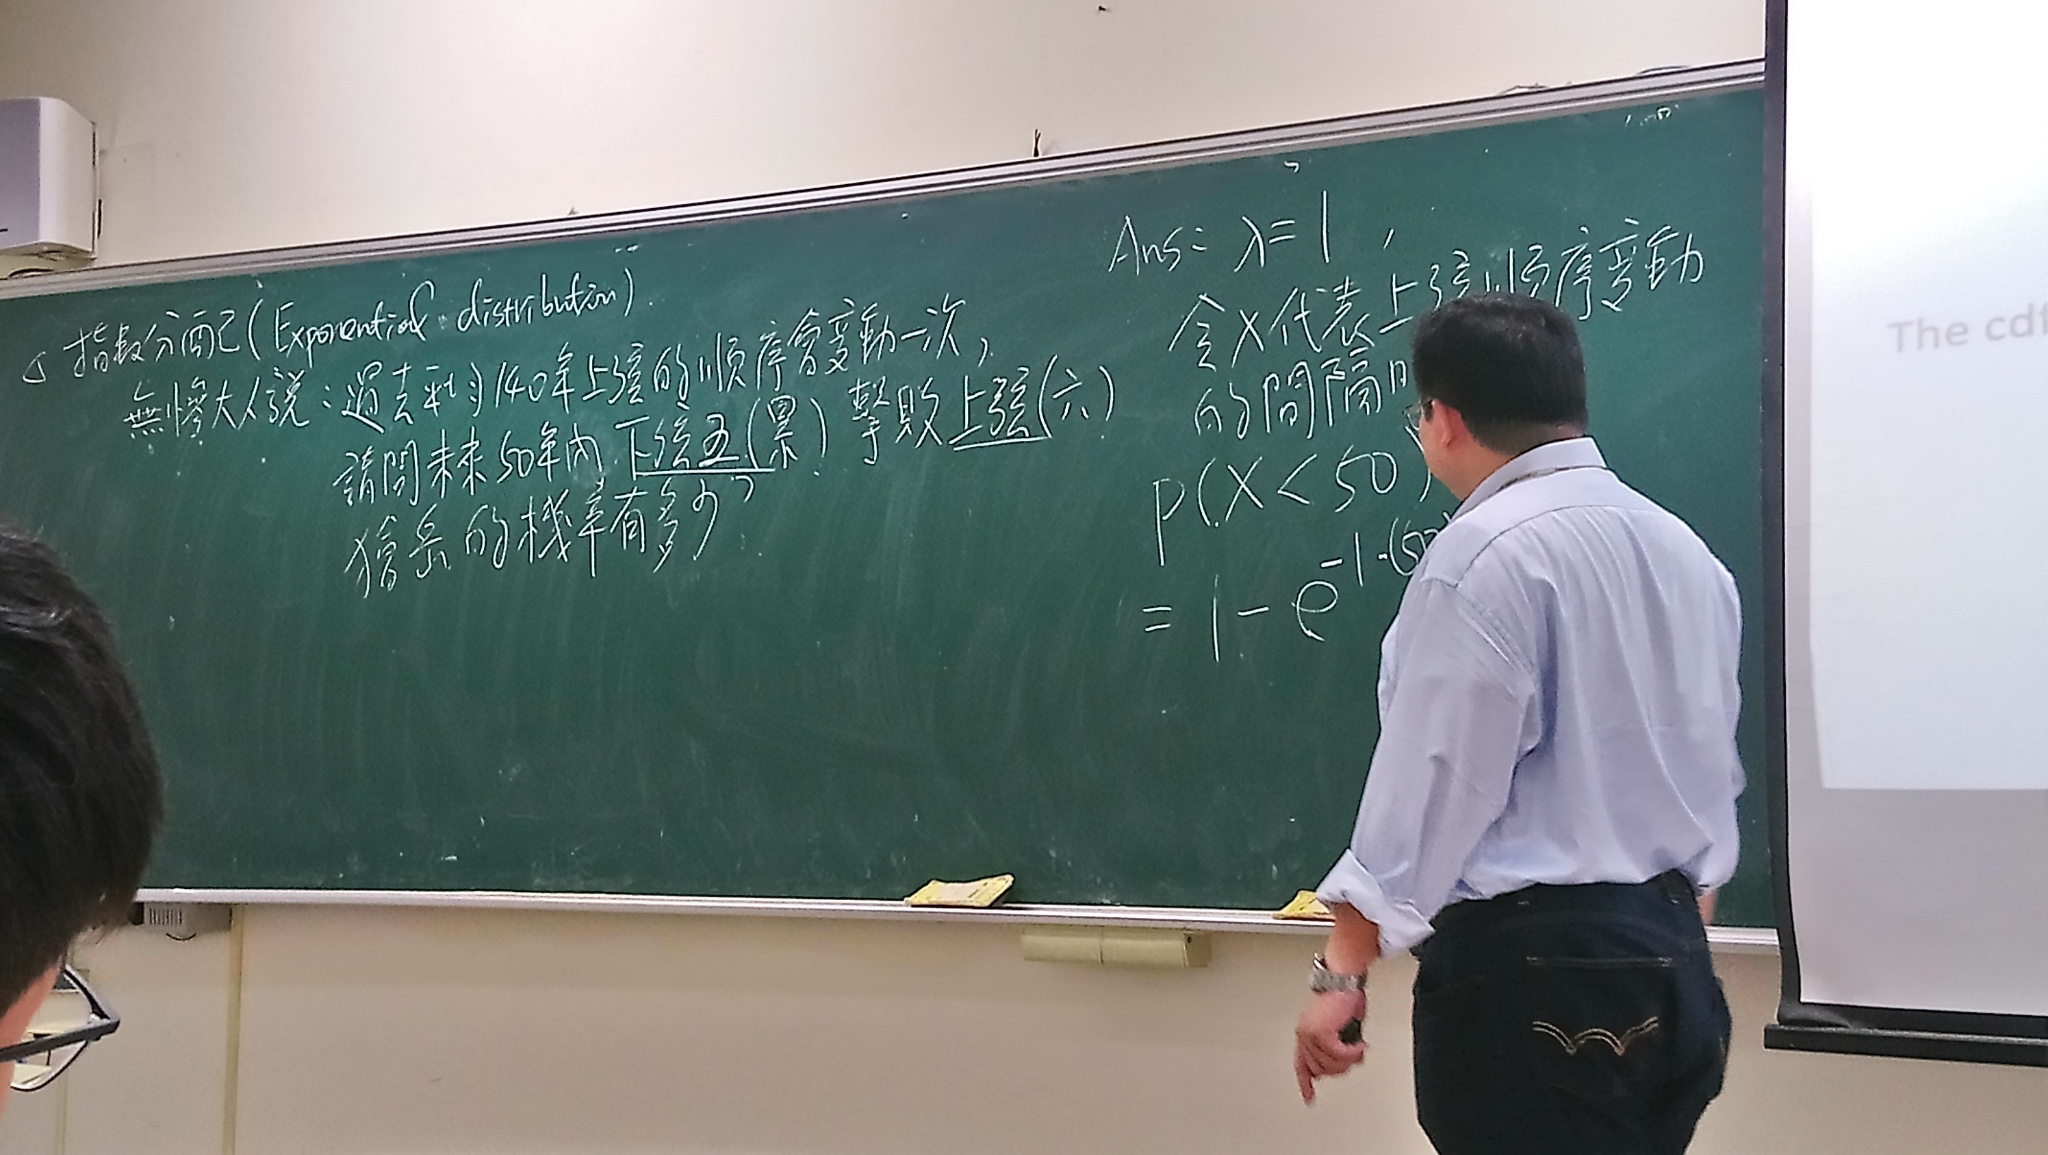 指數分配(Exponential distribution).
無慘大人說：過去平均140年上弦的順序會變動一次，
請問未來50年內 下弦五(累) 擊敗上弦(六)
獪岳的機率有多少?
Ans: λ=1,
令X代表上弦順序變動
的間隔
P(X<50)
= 1-e^{-1·(50
The cdf